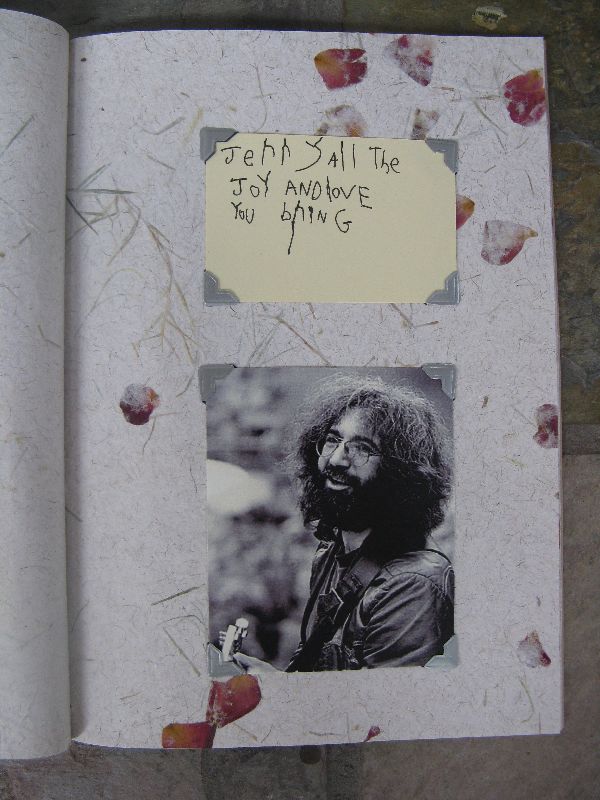 Jehh yall The
JOY ANDlOVE
YOU bhiNG